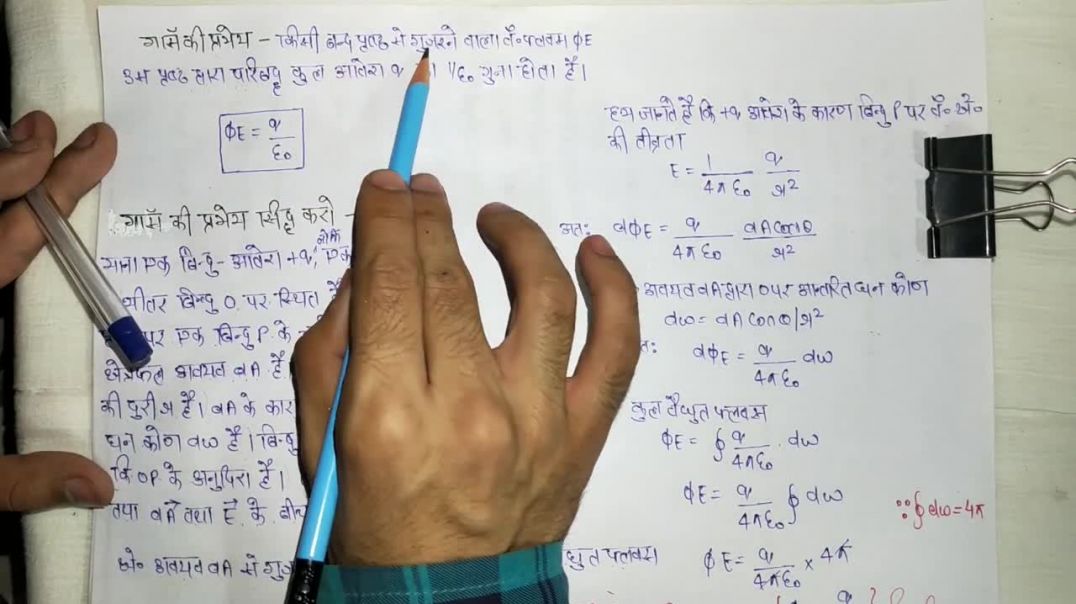 गॉस की प्रमेय – किसी बन्द पृष्ठ से गुजरने वाला वै॰ फ्लक्स ϕE
उस पृष्ठ द्वारा परिबद्ध कुल आवेश q 1/ε₀ गुना होता है।
ϕE = q/ε₀
गॉस की प्रमेय सिद्ध करो –
माना एक बिन्दु - आवेश +q, एक
भीतर बिन्दु O पर स्थित है
पर एक बिन्दु P के
क्षेत्रफल अवयव dA है
की दूरी r है। dA के कार
घन कोण dω है। बिन्दु
कि OP के अनुदिश है।
तथा dA→ तथा E→ के बीच
क्षे॰ अवयव dA से गुज
हम जानते हैं कि +q आवेश के कारण बिन्दु P पर वै॰ क्षे॰
की तीव्रता
E = 1/4πε₀ q/r²
अतः dϕE = q/4πε₀ dA cosθ/r²
अवयव dA द्वारा O पर अन्तरित घन कोण
dω = dA cosθ/r²
तः dϕE = q/4πε₀ dω
कुल वैद्युत फ्लक्स
ϕE = ∮ q/4πε₀ . dω
ϕE = q/4πε₀ ∮ dω
∵ ∮ dω = 4π
द्युत फ्लक्स
ϕE = q/4πε₀ × 4π